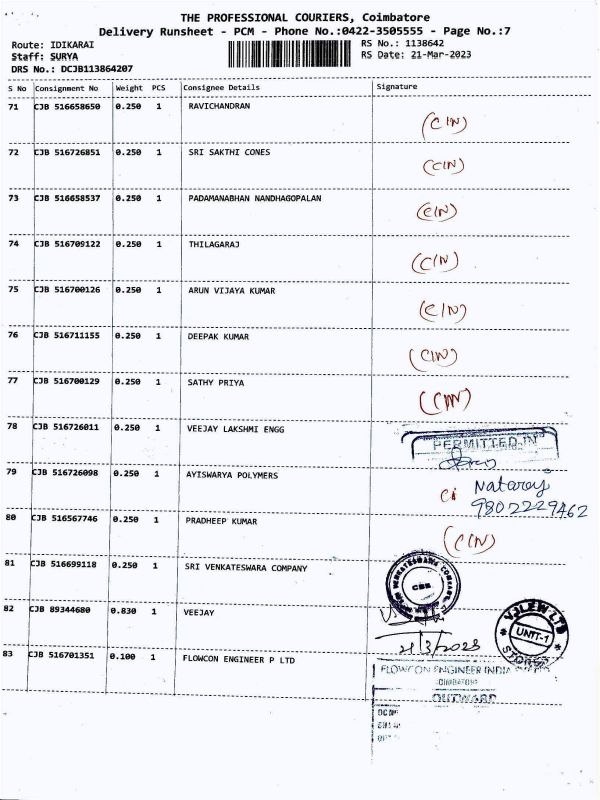 THE PROFESSIONAL COURIERS, Coimbatore
Delivery Runsheet - PCM - Phone No.:0422-3505555 - Page No.:7
Route: IDIKARAI RS No.: 1138642
Staff: SURYA RS Date: 21-Mar-2023
DRS No.: DCJB113864207
S No Consignment No Weight PCS Consignee Details Signature
71 CJB 516658650 0.250 1 RAVICHANDRAN
(CIN)
72 CJB 516726851 0.250 1 SRI SAKTHI CONES
(CIN)
73 CJB 516658537 0.250 1 PADAMANABHAN NANDHAGOPALAN
(CIN)
74 CJB 516709122 0.250 1 THILAGARAJ
(CIN)
75 CJB 516700126 0.250 1 ARUN VIJAYA KUMAR
(CIN)
76 CJB 516711155 0.250 1 DEEPAK KUMAR
(CIN)
77 CJB 516700129 0.250 1 SATHY PRIYA
(CIN)
78 CJB 516726011 0.250 1 VEEJAY LAKSHMI ENGG
PERMITTED IN
79 CJB 516726098 0.250 1 AYISWARYA POLYMERS
Ci Nataraj
9802229462
80 CJB 516567746 0.250 1 PRADHEEP KUMAR
(CIN)
81 CJB 516699118 0.250 1 SRI VENKATESWARA COMPANY
VENKATESWARA COMPANY
CBE
82 CJB 89344680 0.830 1 VEEJAY
21/3/2023
VJLEW LTD
UNIT-1
STORES
83 CJB 516701351 0.100 1 FLOWCON ENGINEER P LTD
FLOWCON ENGINEER INDIA
COIMBATORE
OUTWARD